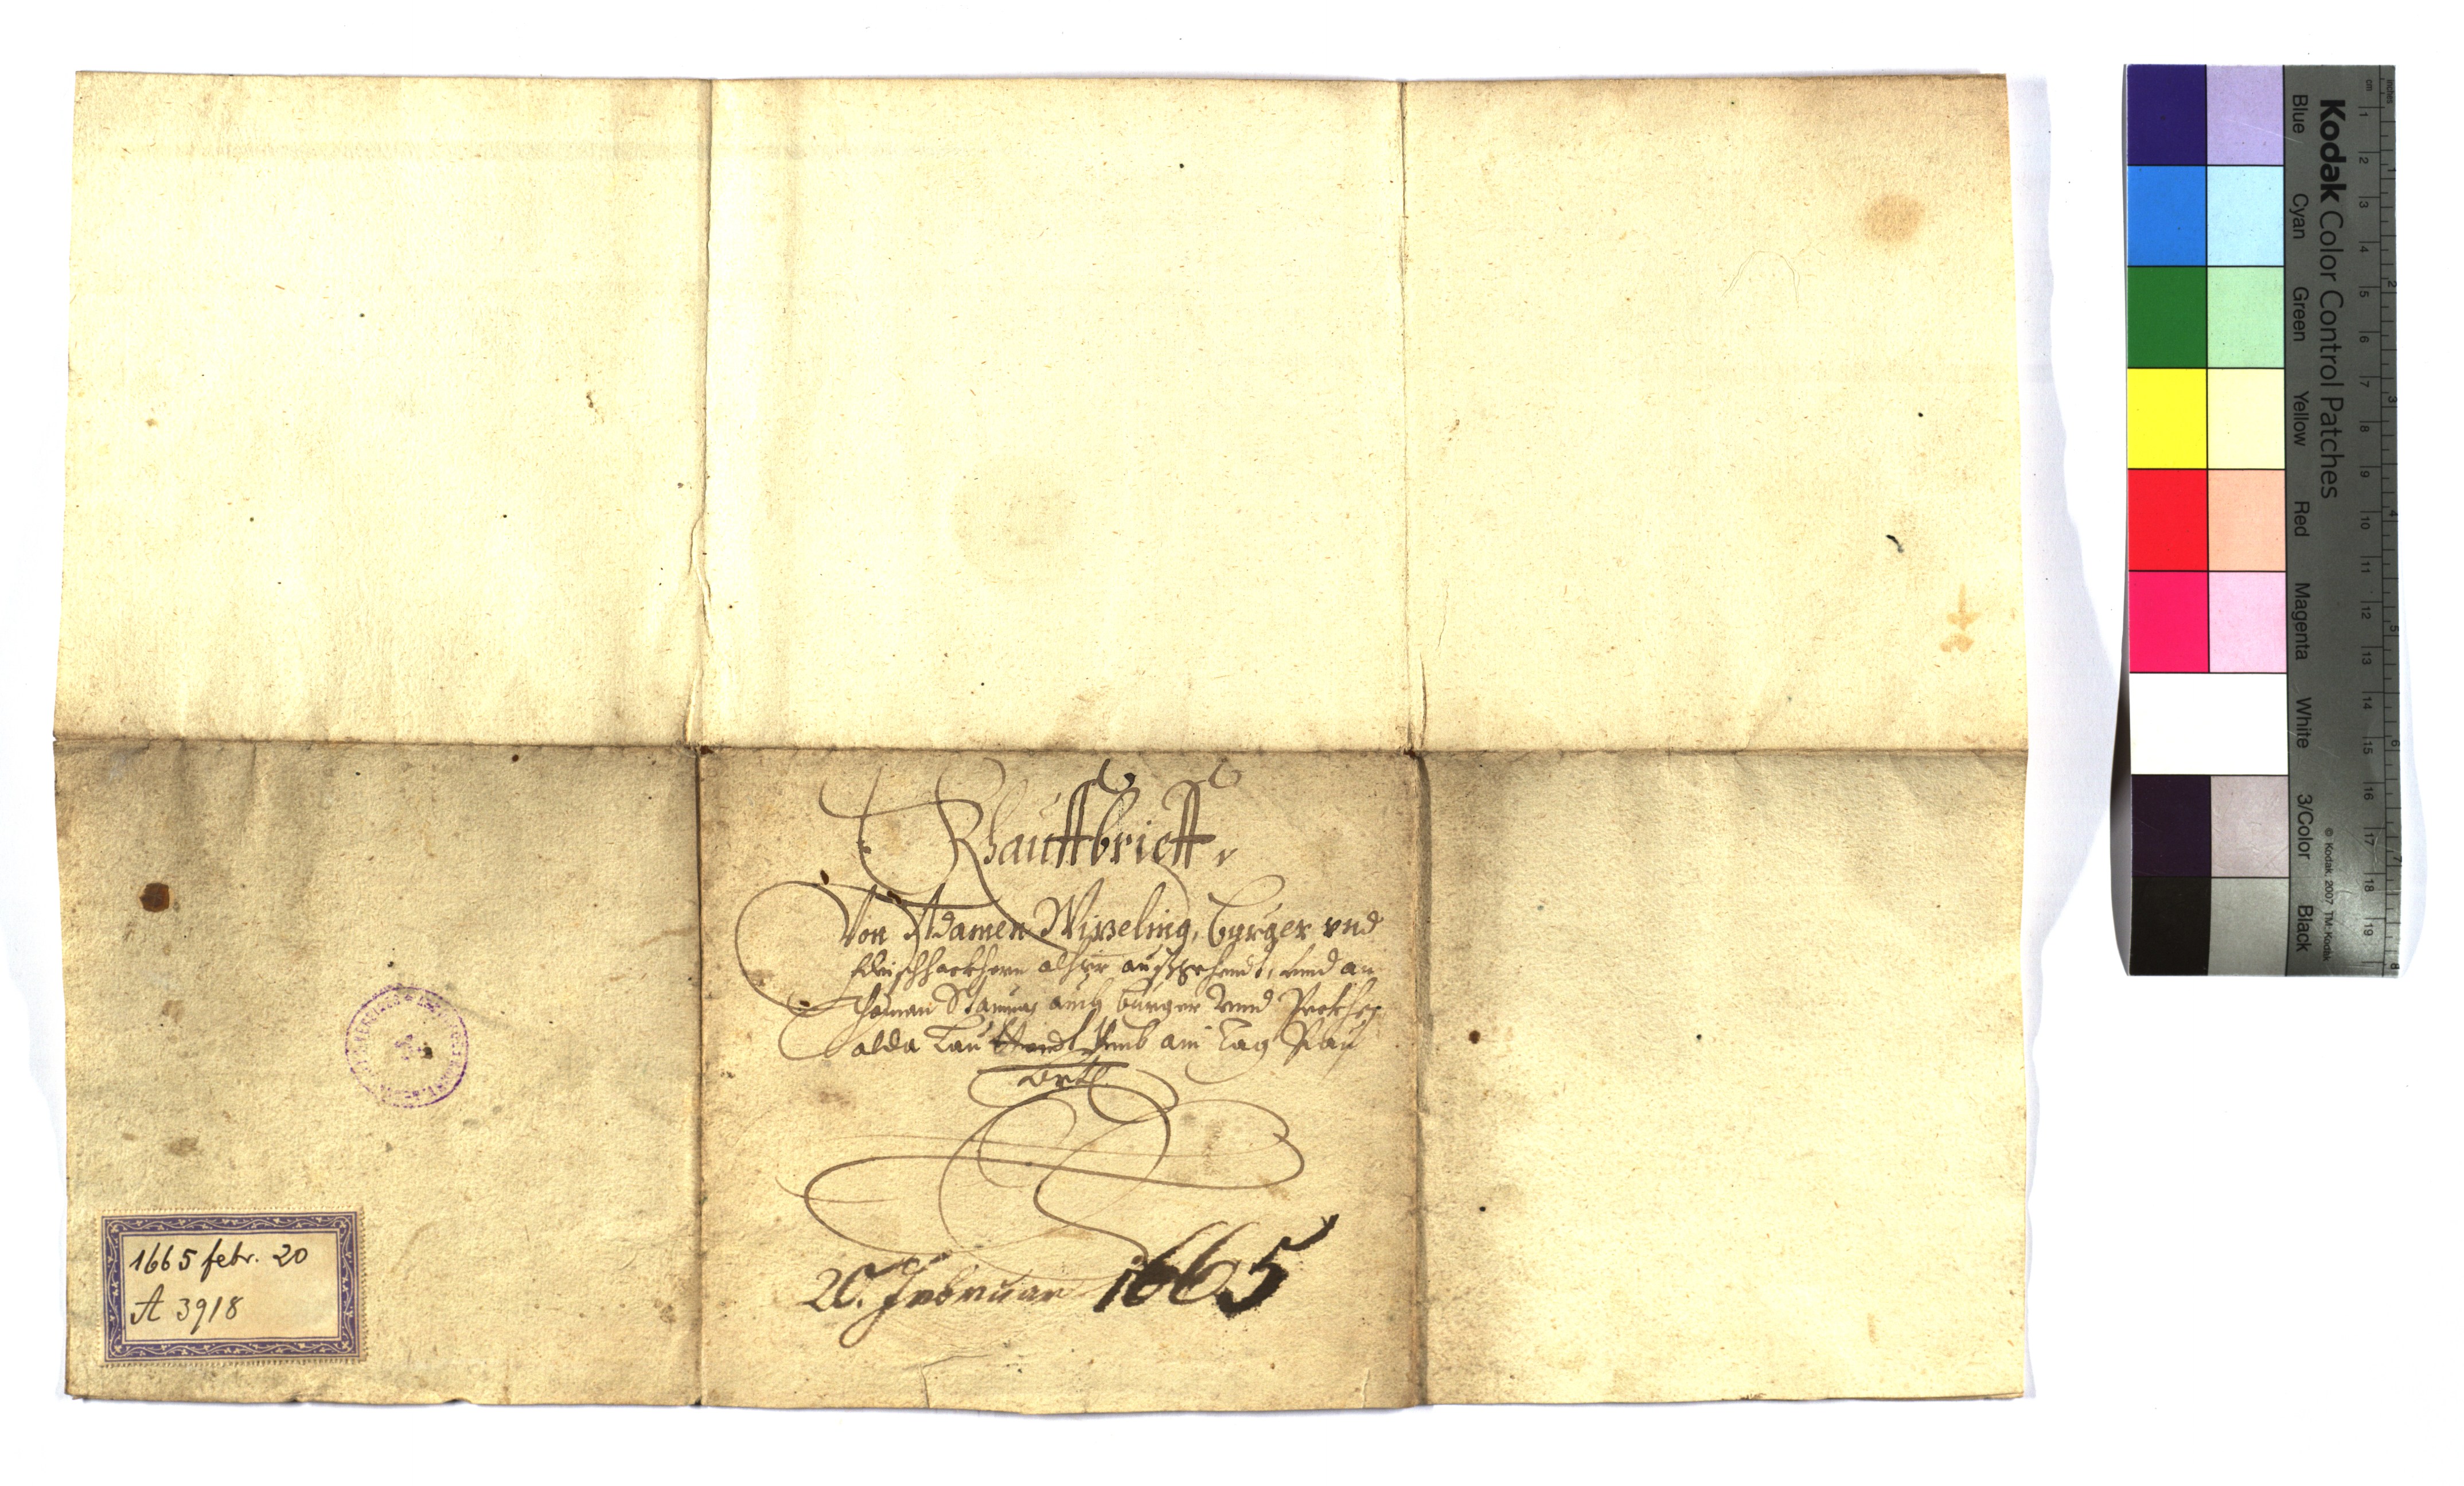 Khauffbrieff
Von Adamen Wisseling, burger vnd
Fleischhackhern alhir außgehendt, vnnd an
Thoman Stamus auch burger vnnd
alda lauttendt Vmb ain Tag Pau
20. Februar 1665
1665 febr. 20
A 3918
Kodak Color Control Patches
Blue Cyan Green Yellow Red Magenta White 3/Color Black
© Kodak, 2007 TM: Kodak
inches 1 2 3 4 5 6 7 8
cm 1 2 3 4 5 6 7 8 9 10 11 12 13 14 15 16 17 18 19